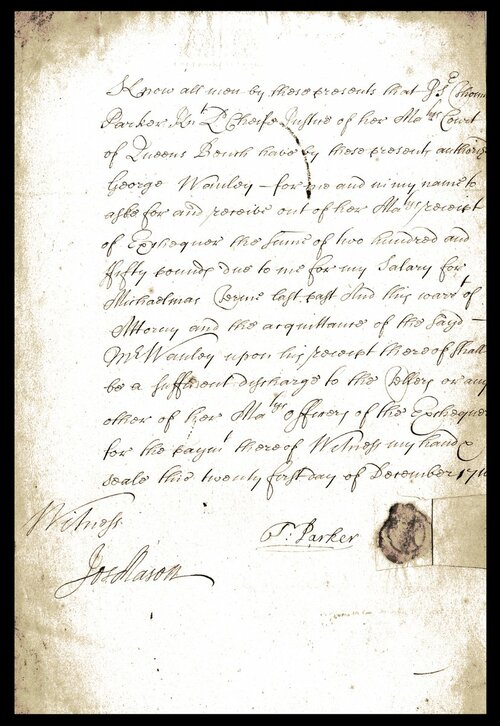 Know all men by these presents that I Sr Thomas
Parker Knt Ld Cheife Justice of her Matys Court
of Queens Bench have by these presents authoriz
George Wanley - for me and in my name to
aske for and receive out of her Matys receipt
of Exchequer the Summe of two hundred and
fifty pounds due to me for my Salary for
Michaelmas Terme last past And this warrt of
Attorny and the acquittance of the sayd -
Mr Wanley upon his receipt thereof shall
be a sufficient discharge to the Tellers or any
other of her Matys officers of the Exchequer
for the paymt thereof Witness my hand &
seale this twenty first day of December 171
Witness
T: Parker
Jos Mason